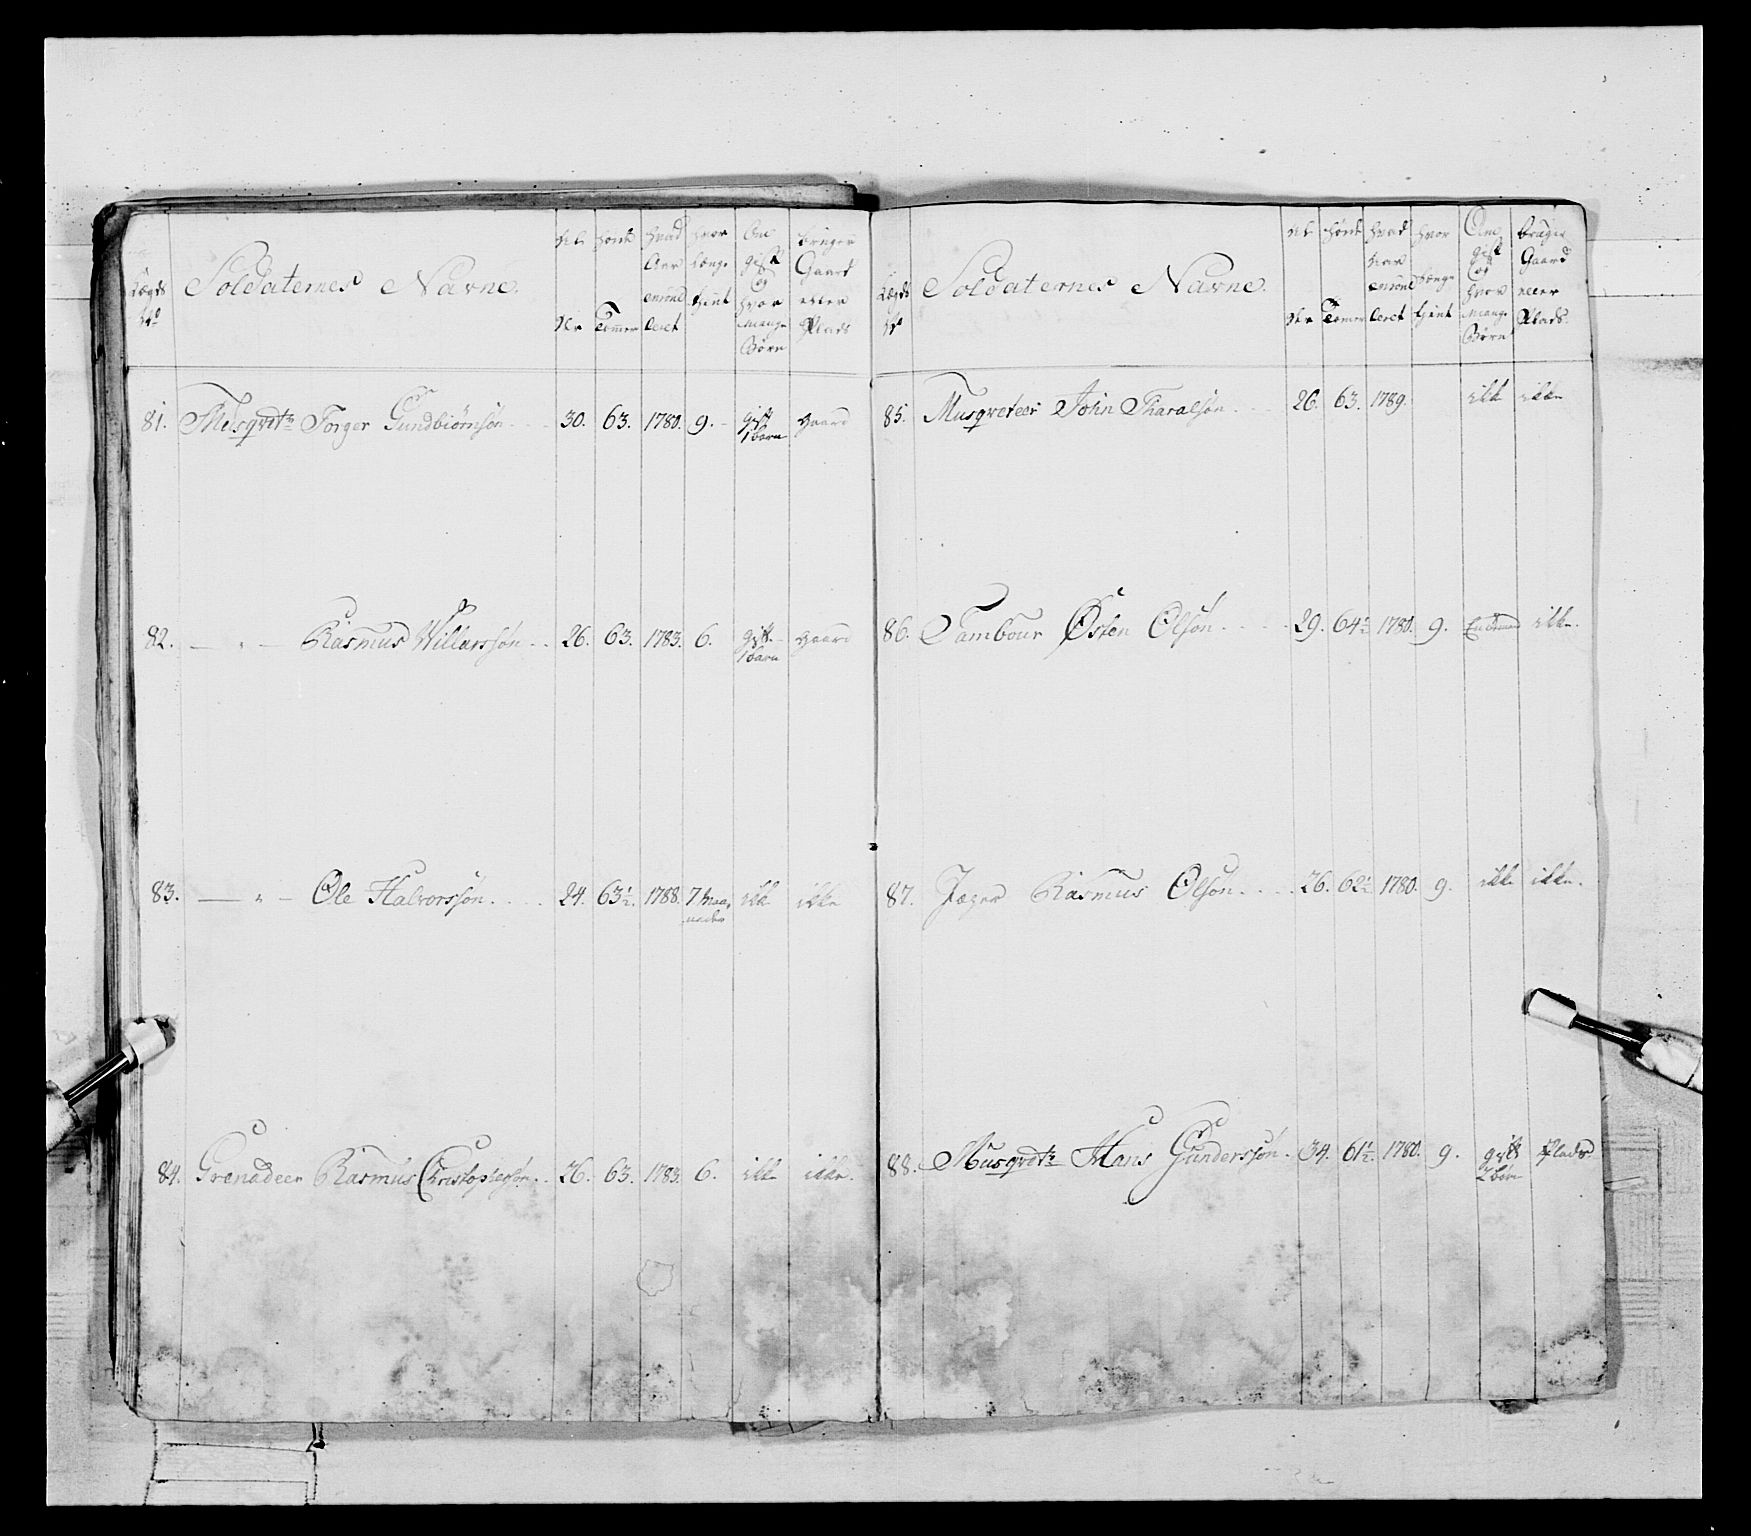 Lægds No
Soldaternes Navne.
Høide Tommer
hvad Aar enroulleret
hvor længe tient
Om gift og hvor mange Børn
bruger Gaard eller Plads
81. Musqvetr Torger Gundbiørnsøn 30. 63. 1780. 9. gift 1 barn Gaard
82. — " — Rasmus Willarssøn 26. 63. 1783. 6. gift 1 barn Gaard
83. — " — Ole Halvorssøn 24. 63½. 1788. 7 Maaneder ikke ikke
84. Grenadeer Rasmus Christophersøn 26. 63. 1783. 6. ikke ikke.
Lægds No
Soldaternes Navne.
Høide Tommer
hvad Aar enroulleret
hvor længe tient
Om gift og hvor mange Børn
bruger Gaard eller Plads.
85. Musqveteer John Tharalsøn 26. 63. 1789. ikke ikke
86. Tambour Østen Olsøn 29. 64½ 1780. 9. ikke.
87. Jæger Rasmus Olsøn 26. 62½ 1780. 9. ikke ikke.
88. Musqvetr Hans Gunderssøn 34. 61½ 1780. 9. gift 2 børn Plads